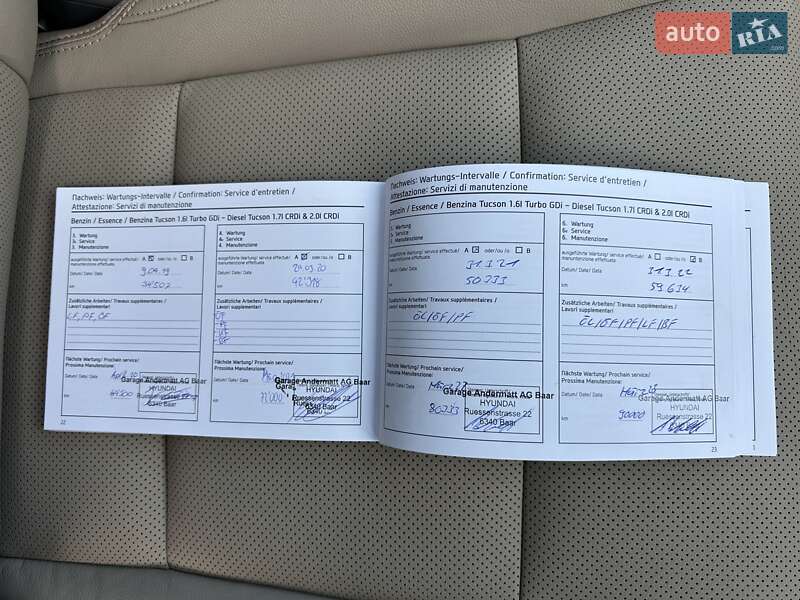 auto RIA.com
Nachweis: Wartungs-Intervalle / Confirmation: Service d'entretien /
Attestazione: Servizi di manutenzione
Benzin / Essence / Benzina Tucson 1.6l Turbo GDi – Diesel Tucson 1.7l CRDi & 2.0l CRDi
3. Wartung
3. Service
3. Manutenzione
ausgeführte Wartung/ service effectué/ A oder/ou /o B
manutenzione effettuata:
Datum/ Date/ Data
km 34502
Zusätzliche Arbeiten/ Travaux supplémentaires /
Lavori supplementari
LF, PF, ÖF
Nächste Wartung/ Prochain service/
Prossima Manutenzione:
Datum/ Date/ Data
km
Garage Andermatt AG Baar
HYUNDAI
Ruessenstrasse 22
6340 Baar
4. Wartung
4. Service
4. Manutenzione
ausgeführte Wartung/ service effectué/ A oder/ou /o B
manutenzione effettuata:
Datum/ Date/ Data
km
Zusätzliche Arbeiten/ Travaux supplémentaires /
Lavori supplementari
Nächste Wartung/ Prochain service/
Prossima Manutenzione:
Datum/ Date/ Data
km
Garage Andermatt AG Baar
HYUNDAI
Ruessenstrasse 22
6340 Baar
22
Nachweis: Wartungs-Intervalle / Confirmation: Service d'entretien /
Attestazione: Servizi di manutenzione
Benzin / Essence / Benzina Tucson 1.6l Turbo GDi – Diesel Tucson 1.7l CRDi & 2.0l CRDi
5. Wartung
5. Service
5. Manutenzione
ausgeführte Wartung/ service effectué/ A oder/ou /o B
manutenzione effettuata:
Datum/ Date/ Data 31.3.21
km 50733
Zusätzliche Arbeiten/ Travaux supplémentaires /
Lavori supplementari
ÖL/ÖF/PF
Nächste Wartung/ Prochain service/
Prossima Manutenzione:
Datum/ Date/ Data
km 80733
Garage Andermatt AG Baar
HYUNDAI
Ruessenstrasse 22
6340 Baar
6. Wartung
6. Service
6. Manutenzione
ausgeführte Wartung/ service effectué/ A oder/ou /o B
manutenzione effettuata:
Datum/ Date/ Data 31.3.22
km 59634
Zusätzliche Arbeiten/ Travaux supplémentaires /
Lavori supplementari
ÖL/ÖF/PF/LF/BF
Nächste Wartung/ Prochain service/
Prossima Manutenzione:
Datum/ Date/ Data
km 90000
Garage Andermatt AG Baar
HYUNDAI
Ruessenstrasse 22
23